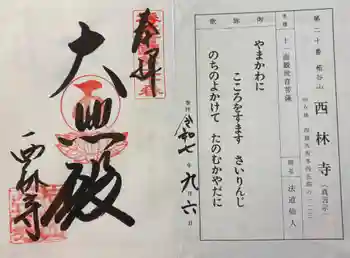 奉拝
大悲殿
西林寺
第二十番 栢谷山 西林寺 (真言宗)
本尊 十一面観世音菩薩
開基 法道仙人
御詠歌
やまかわに
こころをすます さいりんじ
のちのよかけて たのむかやだに
令和七年九月六日